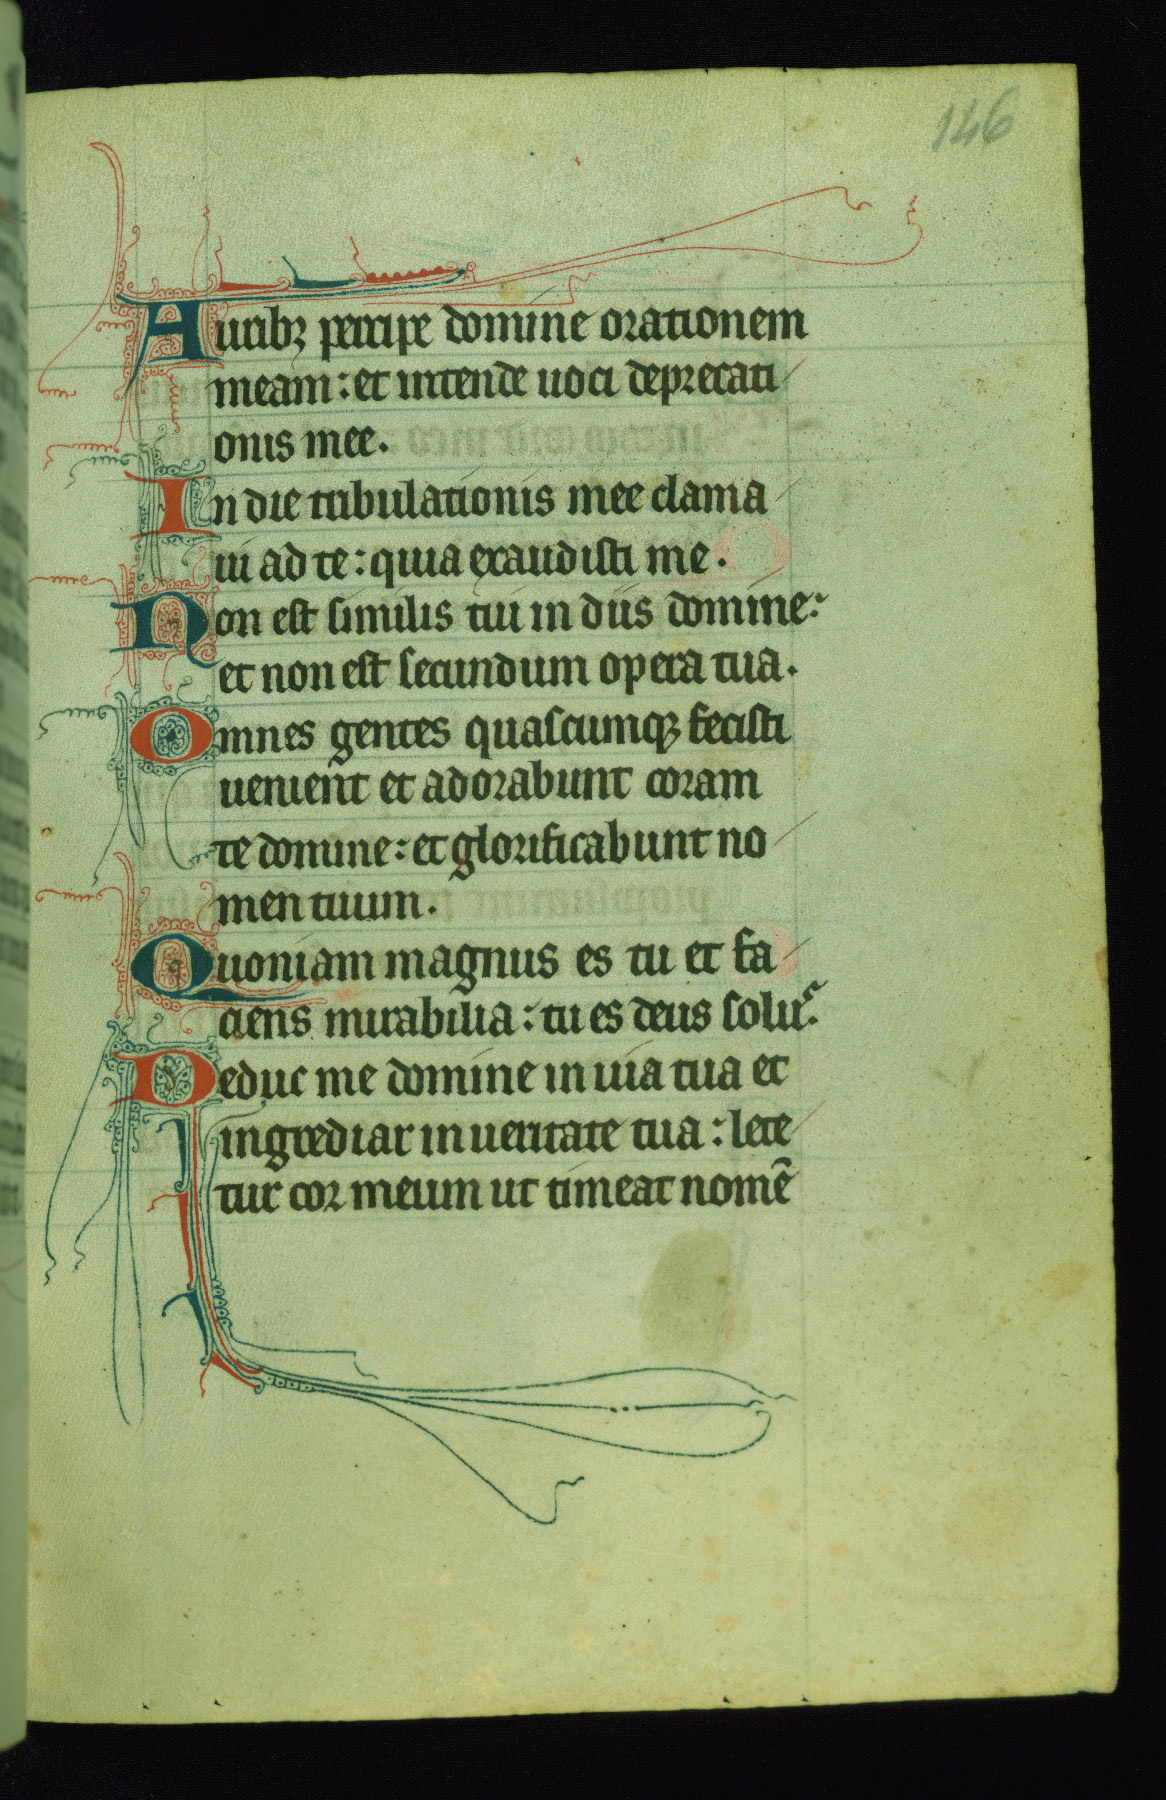 146
Auribꝫ percipe domine orationem
meam : et intende uoci deprecati
onis mee.
In die tribulationis mee clama
ui ad te : quia exaudisti me.
Non est similis tui in diis domine :
et non est secundum opera tua.
Omnes gentes quascumqꝫ fecisti
uenient et adorabunt coram
te domine : et glorificabunt no
men tuum.
Quoniam magnus es tu et fa
ciens mirabilia : tu es deus soluˢ.
Deduc me domine in uia tua et
ingrediar in ueritate tua : lete
tur cor meum ut timeat nomē